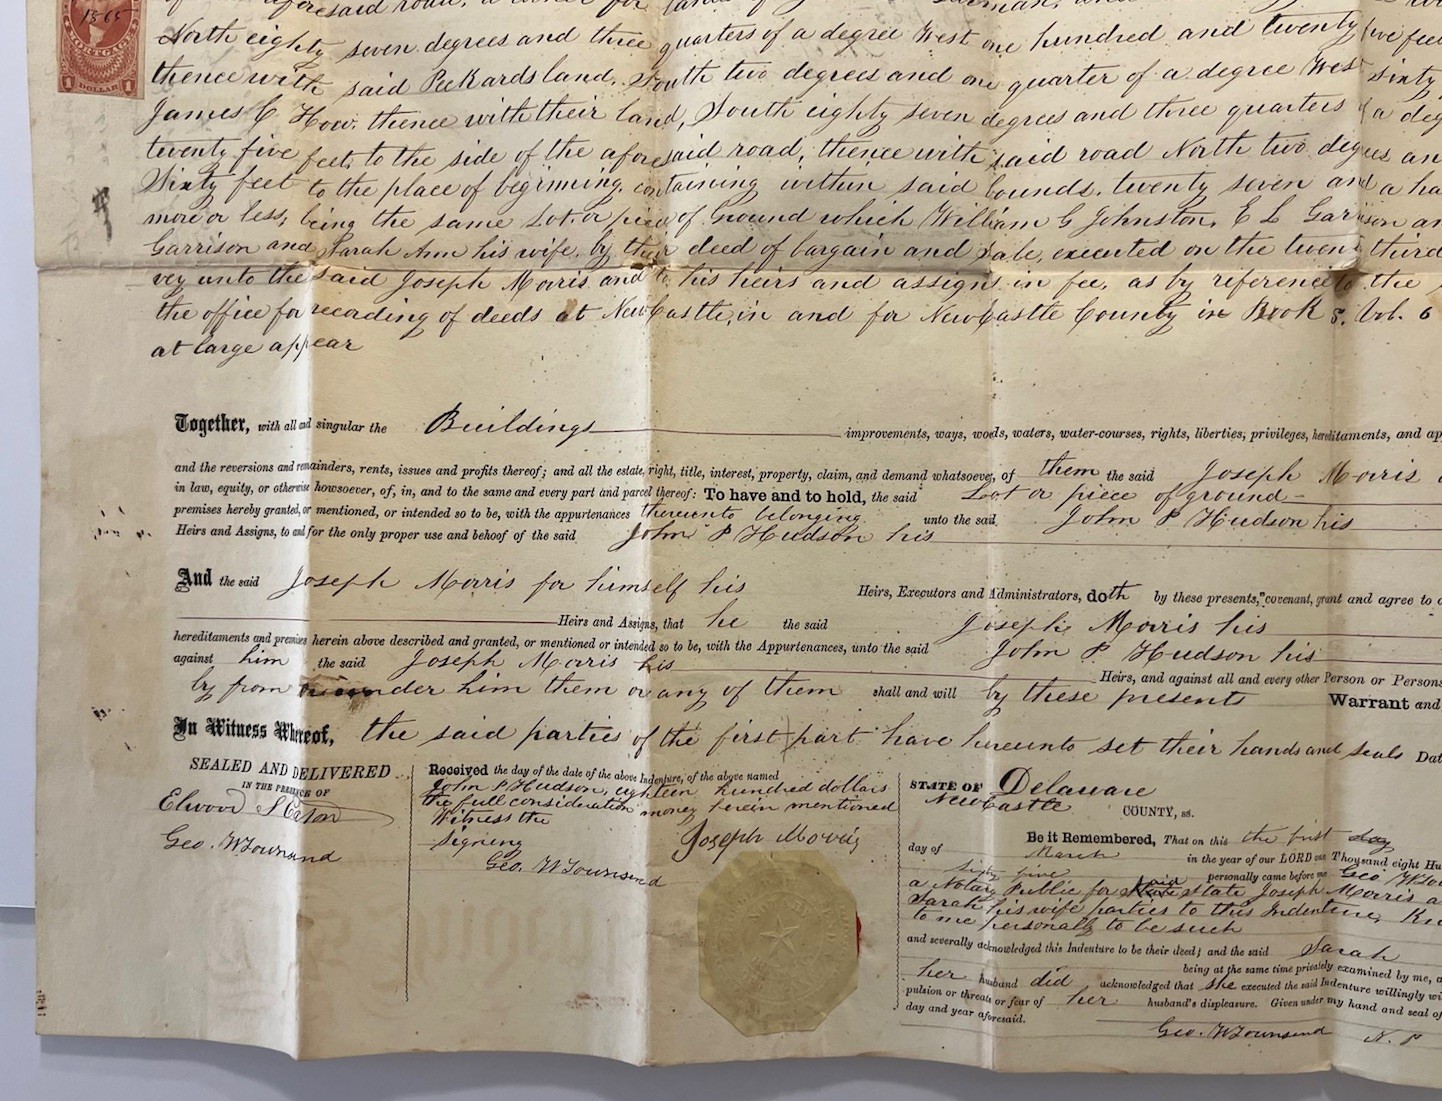 1865
MORTGAGE
1 DOLLAR 1
aforesaid road, a corner for lands of
North eighty seven degrees and three quarters of a degree West one hundred and twenty five feet
thence with said Peckards land, South two degrees and one quarter of a degree West sixty
James C. How. thence with their land, South eighty seven degrees and three quarters of a deg
twenty five feet, to the side of the aforesaid road, thence with said road North two degrees an
Sixty feet to the place of beginning, containing within said bounds, twenty seven and a ha
more or less, being the same Lot or piece of Ground which William G Johnston, E L Garrison an
Garrison and Sarah Ann his wife, by their deed of bargain and Sale, executed on the twenty third
vey unto the said Joseph Morris and to his heirs and assigns in fee, as by reference to the
the office for recording of deeds at NewCastle, in and for NewCastle County in Book S. Vol. 6
at large appear
Together, with all and singular the Buildings improvements, ways, woods, waters, water-courses, rights, liberties, privileges, hereditaments, and ap
and the reversions and remainders, rents, issues and profits thereof; and all the estate, right, title, interest, property, claim, and demand whatsoever, of them the said Joseph Morris
in law, equity, or otherwise howsoever, of, in, and to the same and every part and parcel thereof: To have and to hold, the said Lot or piece of ground
premises hereby granted, or mentioned, or intended so to be, with the appurtenances thereunto belonging unto the said John P Hudson his
Heirs and Assigns, to and for the only proper use and behoof of the said John P Hudson his
And the said Joseph Morris for himself his Heirs, Executors and Administrators, doth by these presents, covenant, grant and agree to
Heirs and Assigns, that he the said Joseph Morris his
hereditaments and premises herein above described and granted, or mentioned or intended so to be, with the Appurtenances, unto the said John P Hudson his
against him the said Joseph Morris his Heirs, and against all and every other Person or Persons
by from or under him them or any of them shall and will by these presents Warrant and
In Witness Whereof, the said parties of the first part have hereunto set their hands and seals Dat
SEALED AND DELIVERED
IN THE PRESENCE OF
Geo. W Townsend
Received the day of the date of the above Indenture, of the above named
John P Hudson, eighteen hundred dollars
the full consideration money herein mentioned
Witness the
Signing
Joseph Morris
Geo. W Townsend
STATE OF Delaware
NewCastle COUNTY, ss.
Be it Remembered, That on this the first day
day of March in the year of our LORD one Thousand eight Hu
sixty five personally came before me Geo W Tow
a Notary Public for said State Joseph Morris a
Sarah his wife parties to this Indenture, Kn
to me personally to be such
and severally acknowledged this Indenture to be their deed; and the said Sarah
being at the same time privately examined by me, a
her husband did acknowledged that she executed the said Indenture willingly wi
pulsion or threats or fear of her husband's displeasure. Given under my hand and seal of
day and year aforesaid.
Geo. W Townsend N. P